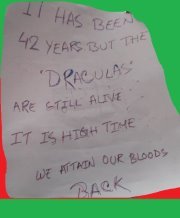 IT HAS BEEN
42 YEARS. BUT THE
'DRACULAS'
ARE STILL ALIVE
IT IS HIGH TIME
WE ATTAIN OUR BLOODS
BACK